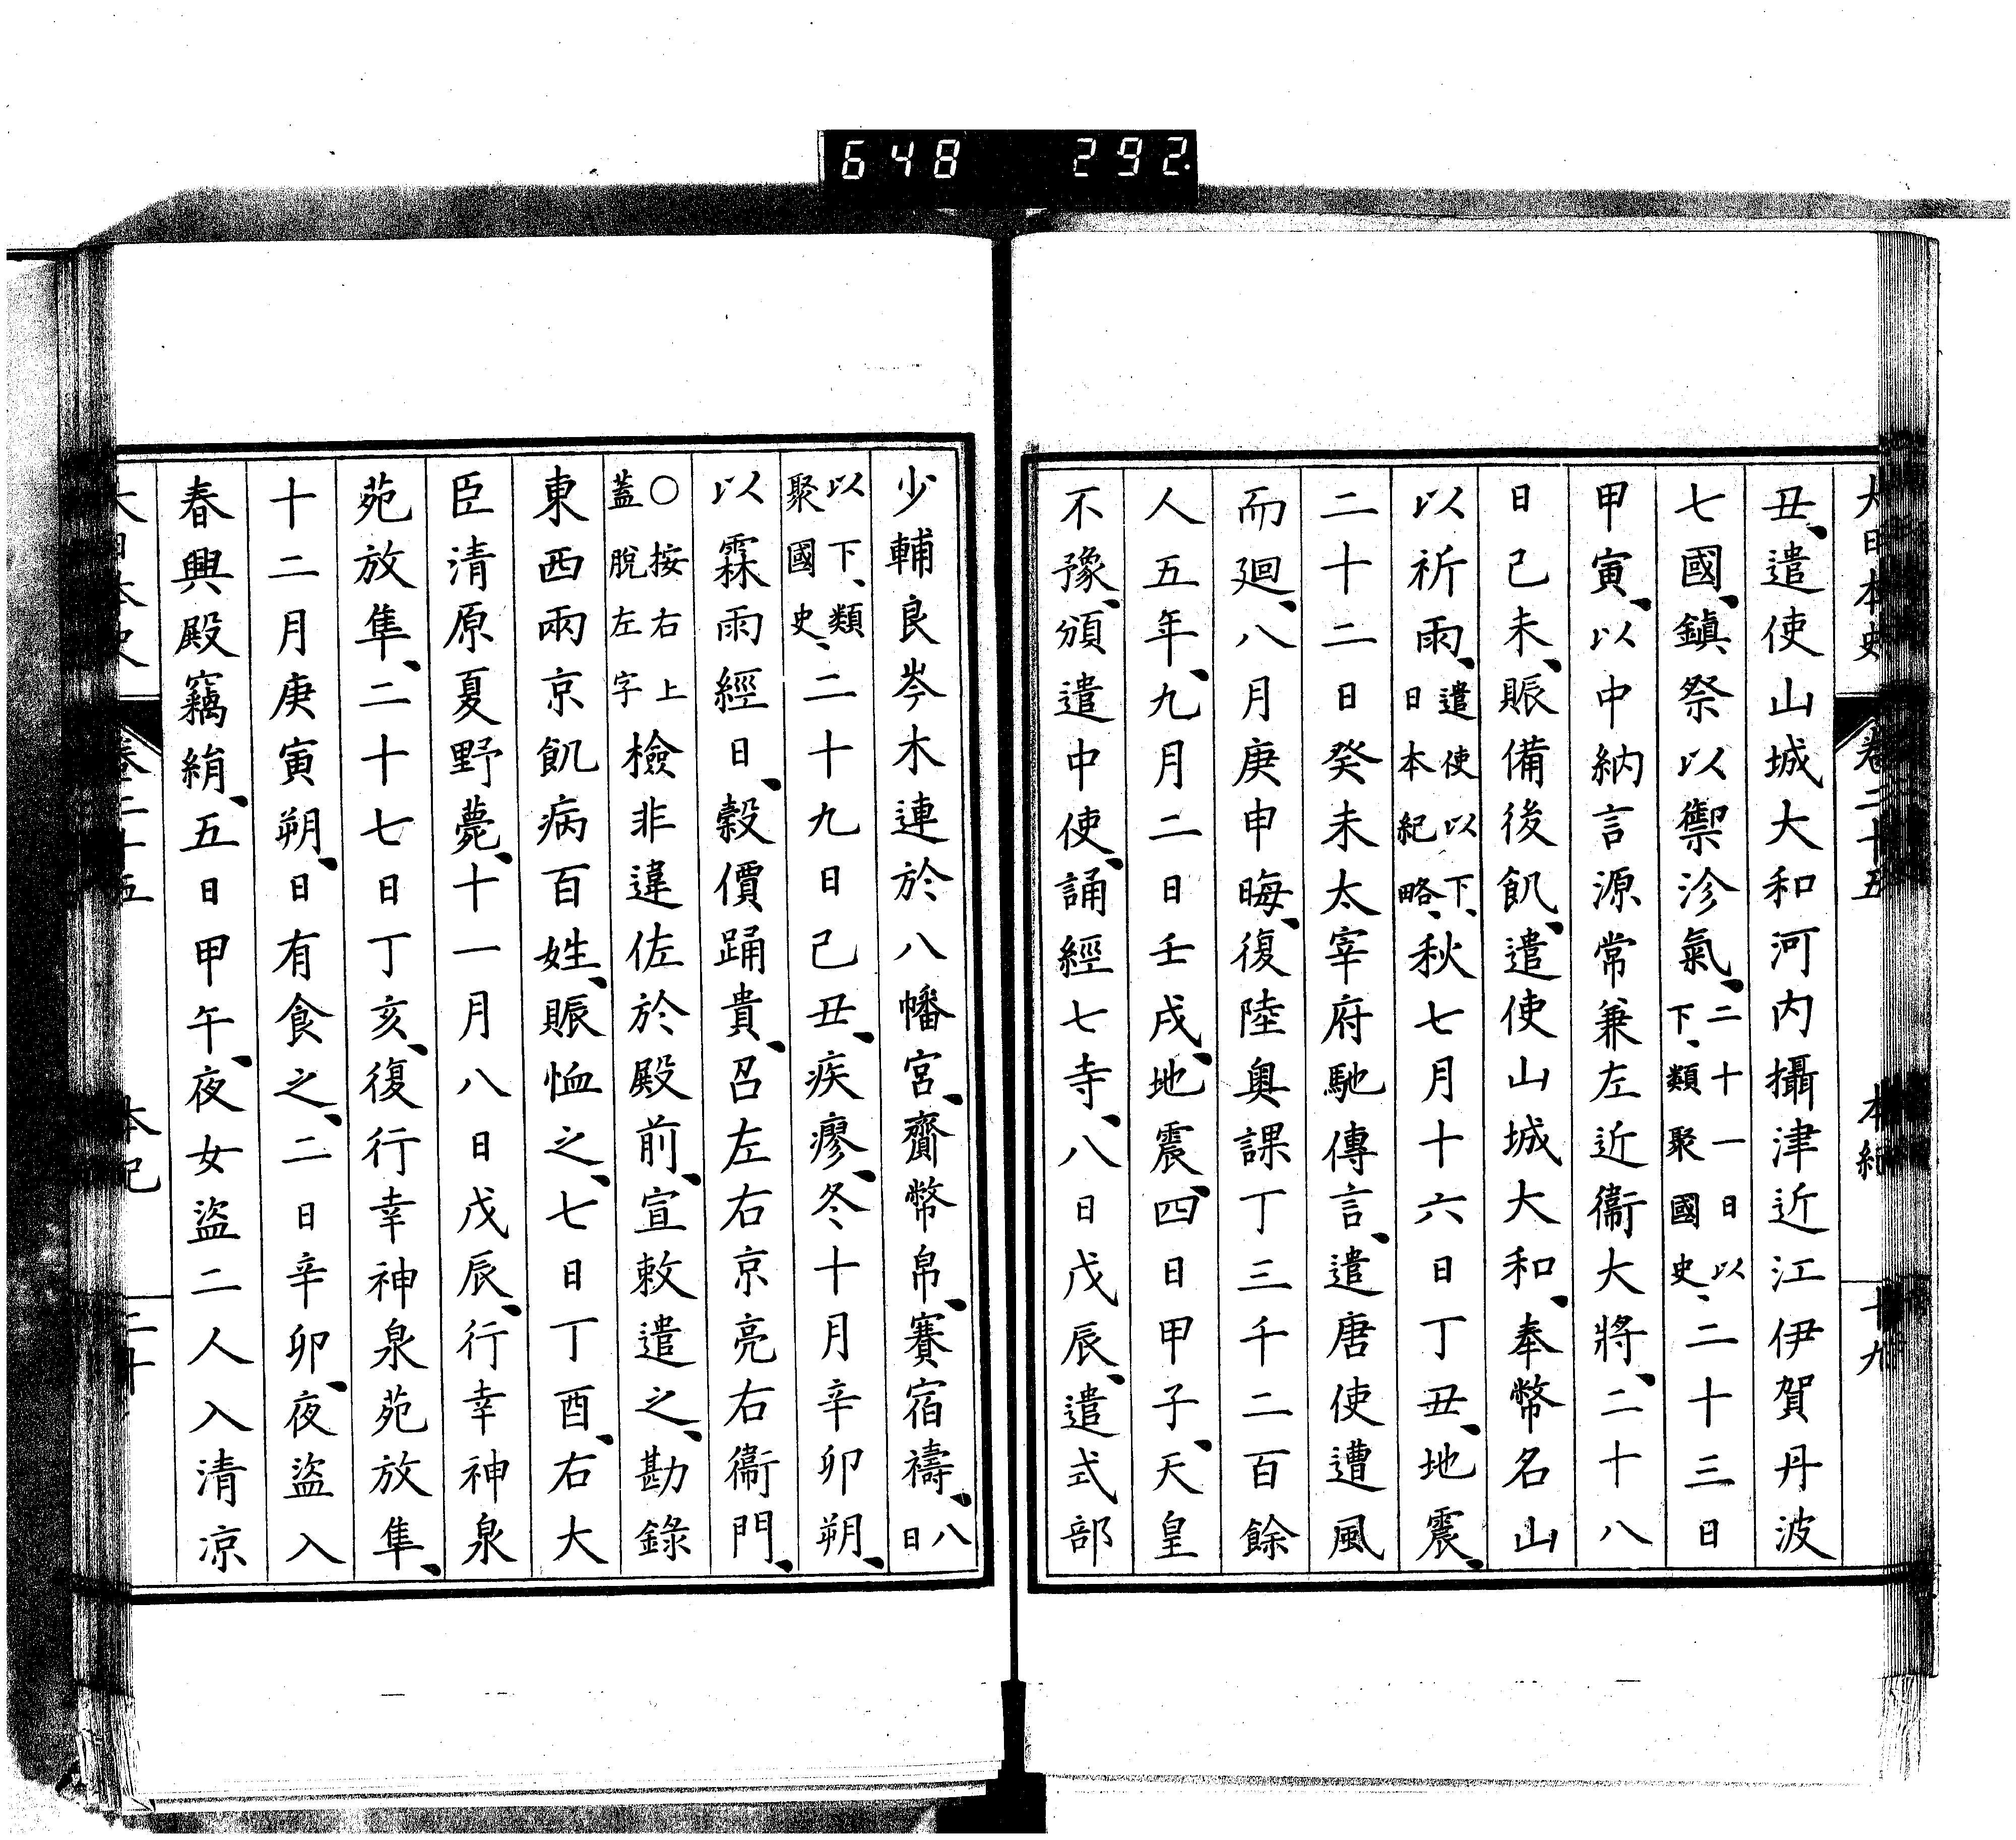 648 292
大日本史 卷二十五 本紀 十九
丑、遣使山城大和河内攝津近江伊賀丹波
七國、鎭祭以禦沴氣、二十一日以下、類聚國史、二十三日
甲寅、以中納言源常兼左近衞大將、二十八
日己未、賑備後飢、遣使山城大和、奉幣名山
以祈雨、遣使以下、日本紀略、秋七月十六日丁丑、地震、
二十二日癸未、太宰府馳傳言、遣唐使遭風
而廻、八月庚申晦、復陸奧課丁三千二百餘
人五年、九月二日壬戌、地震、四日甲子、天皇
不豫、頒遣中使、誦經七寺、八日戊辰、遣式部
少輔良岑木連於八幡宮、齎幣帛、賽宿禱、八日
以下、類聚國史、二十九日己丑、疾瘳、冬十月辛卯朔、
以霖雨經日、穀價踊貴、召左右京亮右衞門、
○按右上蓋脫左字檢非違佐於殿前、宣敕遣之、勘錄
東西兩京飢病百姓、賑恤之、七日丁酉、右大
臣清原夏野薨、十一月八日戊辰、行幸神泉
苑放隼、二十七日丁亥、復行幸神泉苑放隼、
十二月庚寅朔、日有食之、二日辛卯、夜盜入
春興殿竊絹、五日甲午、夜女盜二人入清凉
大日本史 卷二十五 本紀 二十